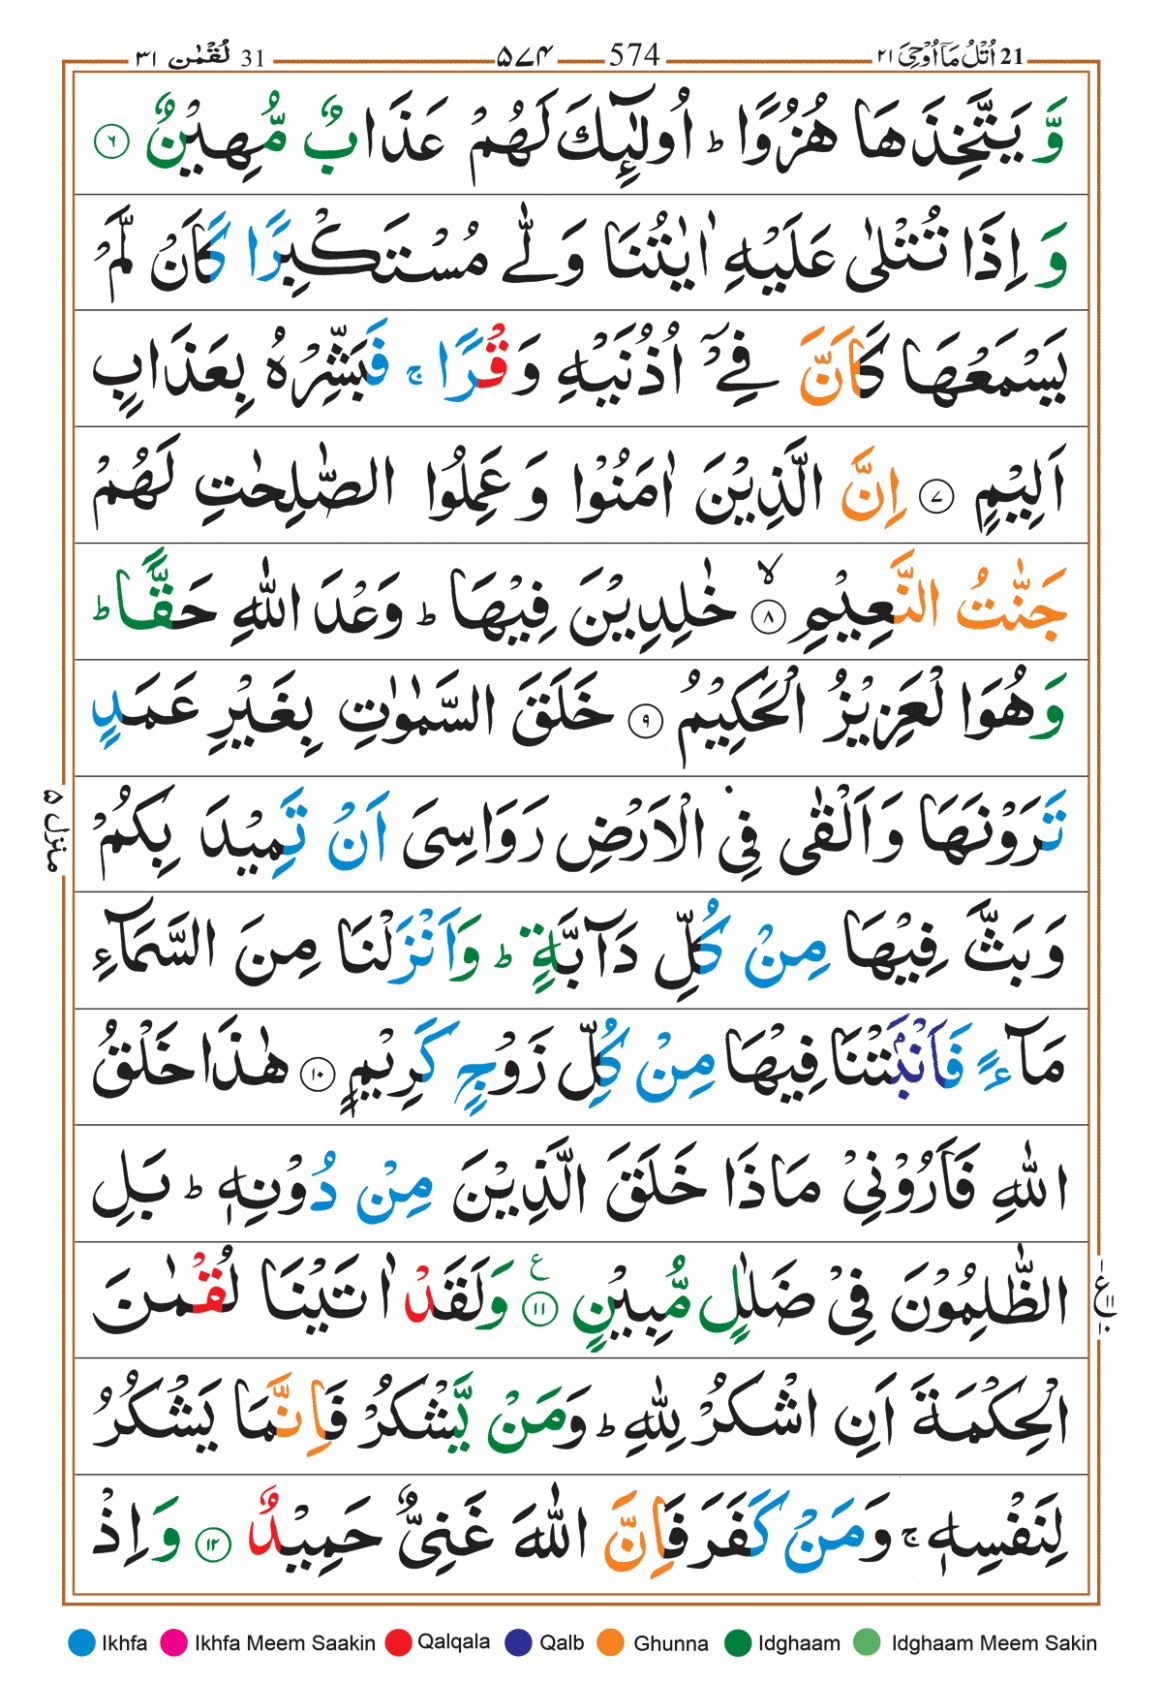 21 اُتْلُ مَاۤ اُوْحِیَ ٢١ 574 ۵۷۴ 31 لُقْمٰن ٣١
وَّ یَتَّخِذَهَا هُزُوًا ؕ اُولٰٓئِكَ لَهُمْ عَذَابٌ مُّهِیْنٌ ۝۶
وَ اِذَا تُتْلٰی عَلَیْهِ اٰیٰتُنَا وَلّٰی مُسْتَكْبِرًا كَاَنْ لَّمْ
یَسْمَعْهَا كَاَنَّ فِیْۤ اُذُنَیْهِ وَقْرًا ۚ فَبَشِّرْهُ بِعَذَابٍ
اَلِیْمٍ ۝۷ اِنَّ الَّذِیْنَ اٰمَنُوْا وَ عَمِلُوا الصّٰلِحٰتِ لَهُمْ
جَنّٰتُ النَّعِیْمِ ۝۸ۙ خٰلِدِیْنَ فِیْهَا ؕ وَعْدَ اللّٰهِ حَقًّا ؕ
وَهُوَا لْعَزِیْزُ الْحَكِیْمُ ۝۹ خَلَقَ السَّمٰوٰتِ بِغَیْرِ عَمَدٍ
تَرَوْنَهَا وَاَلْقٰی فِی الْاَرْضِ رَوَاسِیَ اَنْ تَمِیْدَ بِكُمْ
وَبَثَّ فِیْهَا مِنْ كُلِّ دَآبَّةٍ ؕ وَاَنْزَلْنَا مِنَ السَّمَآءِ
مَآءً فَاَنْۢبَتْنَا فِیْهَا مِنْ كُلِّ زَوْجٍ كَرِیْمٍ ۝۱۰ هٰذَا خَلْقُ
اللّٰهِ فَاَرُوْنِیْ مَاذَا خَلَقَ الَّذِیْنَ مِنْ دُوْنِهٖ ؕ بَلِ
الظّٰلِمُوْنَ فِیْ ضَلٰلٍ مُّبِیْنٍ ۝۱۱ ع وَلَقَدْ اٰتَیْنَا لُقْمٰنَ
الْحِكْمَةَ اَنِ اشْكُرْ لِلّٰهِ ؕ وَمَنْ یَّشْكُرْ فَاِنَّمَا یَشْكُرُ
لِنَفْسِهٖ ۚ وَمَنْ كَفَرَ فَاِنَّ اللّٰهَ غَنِیٌّ حَمِیْدٌ ۝۱۲ وَ اِذْ
منزل ۵
Ikhfa Ikhfa Meem Saakin Qalqala Qalb Ghunna Idghaam Idghaam Meem Sakin